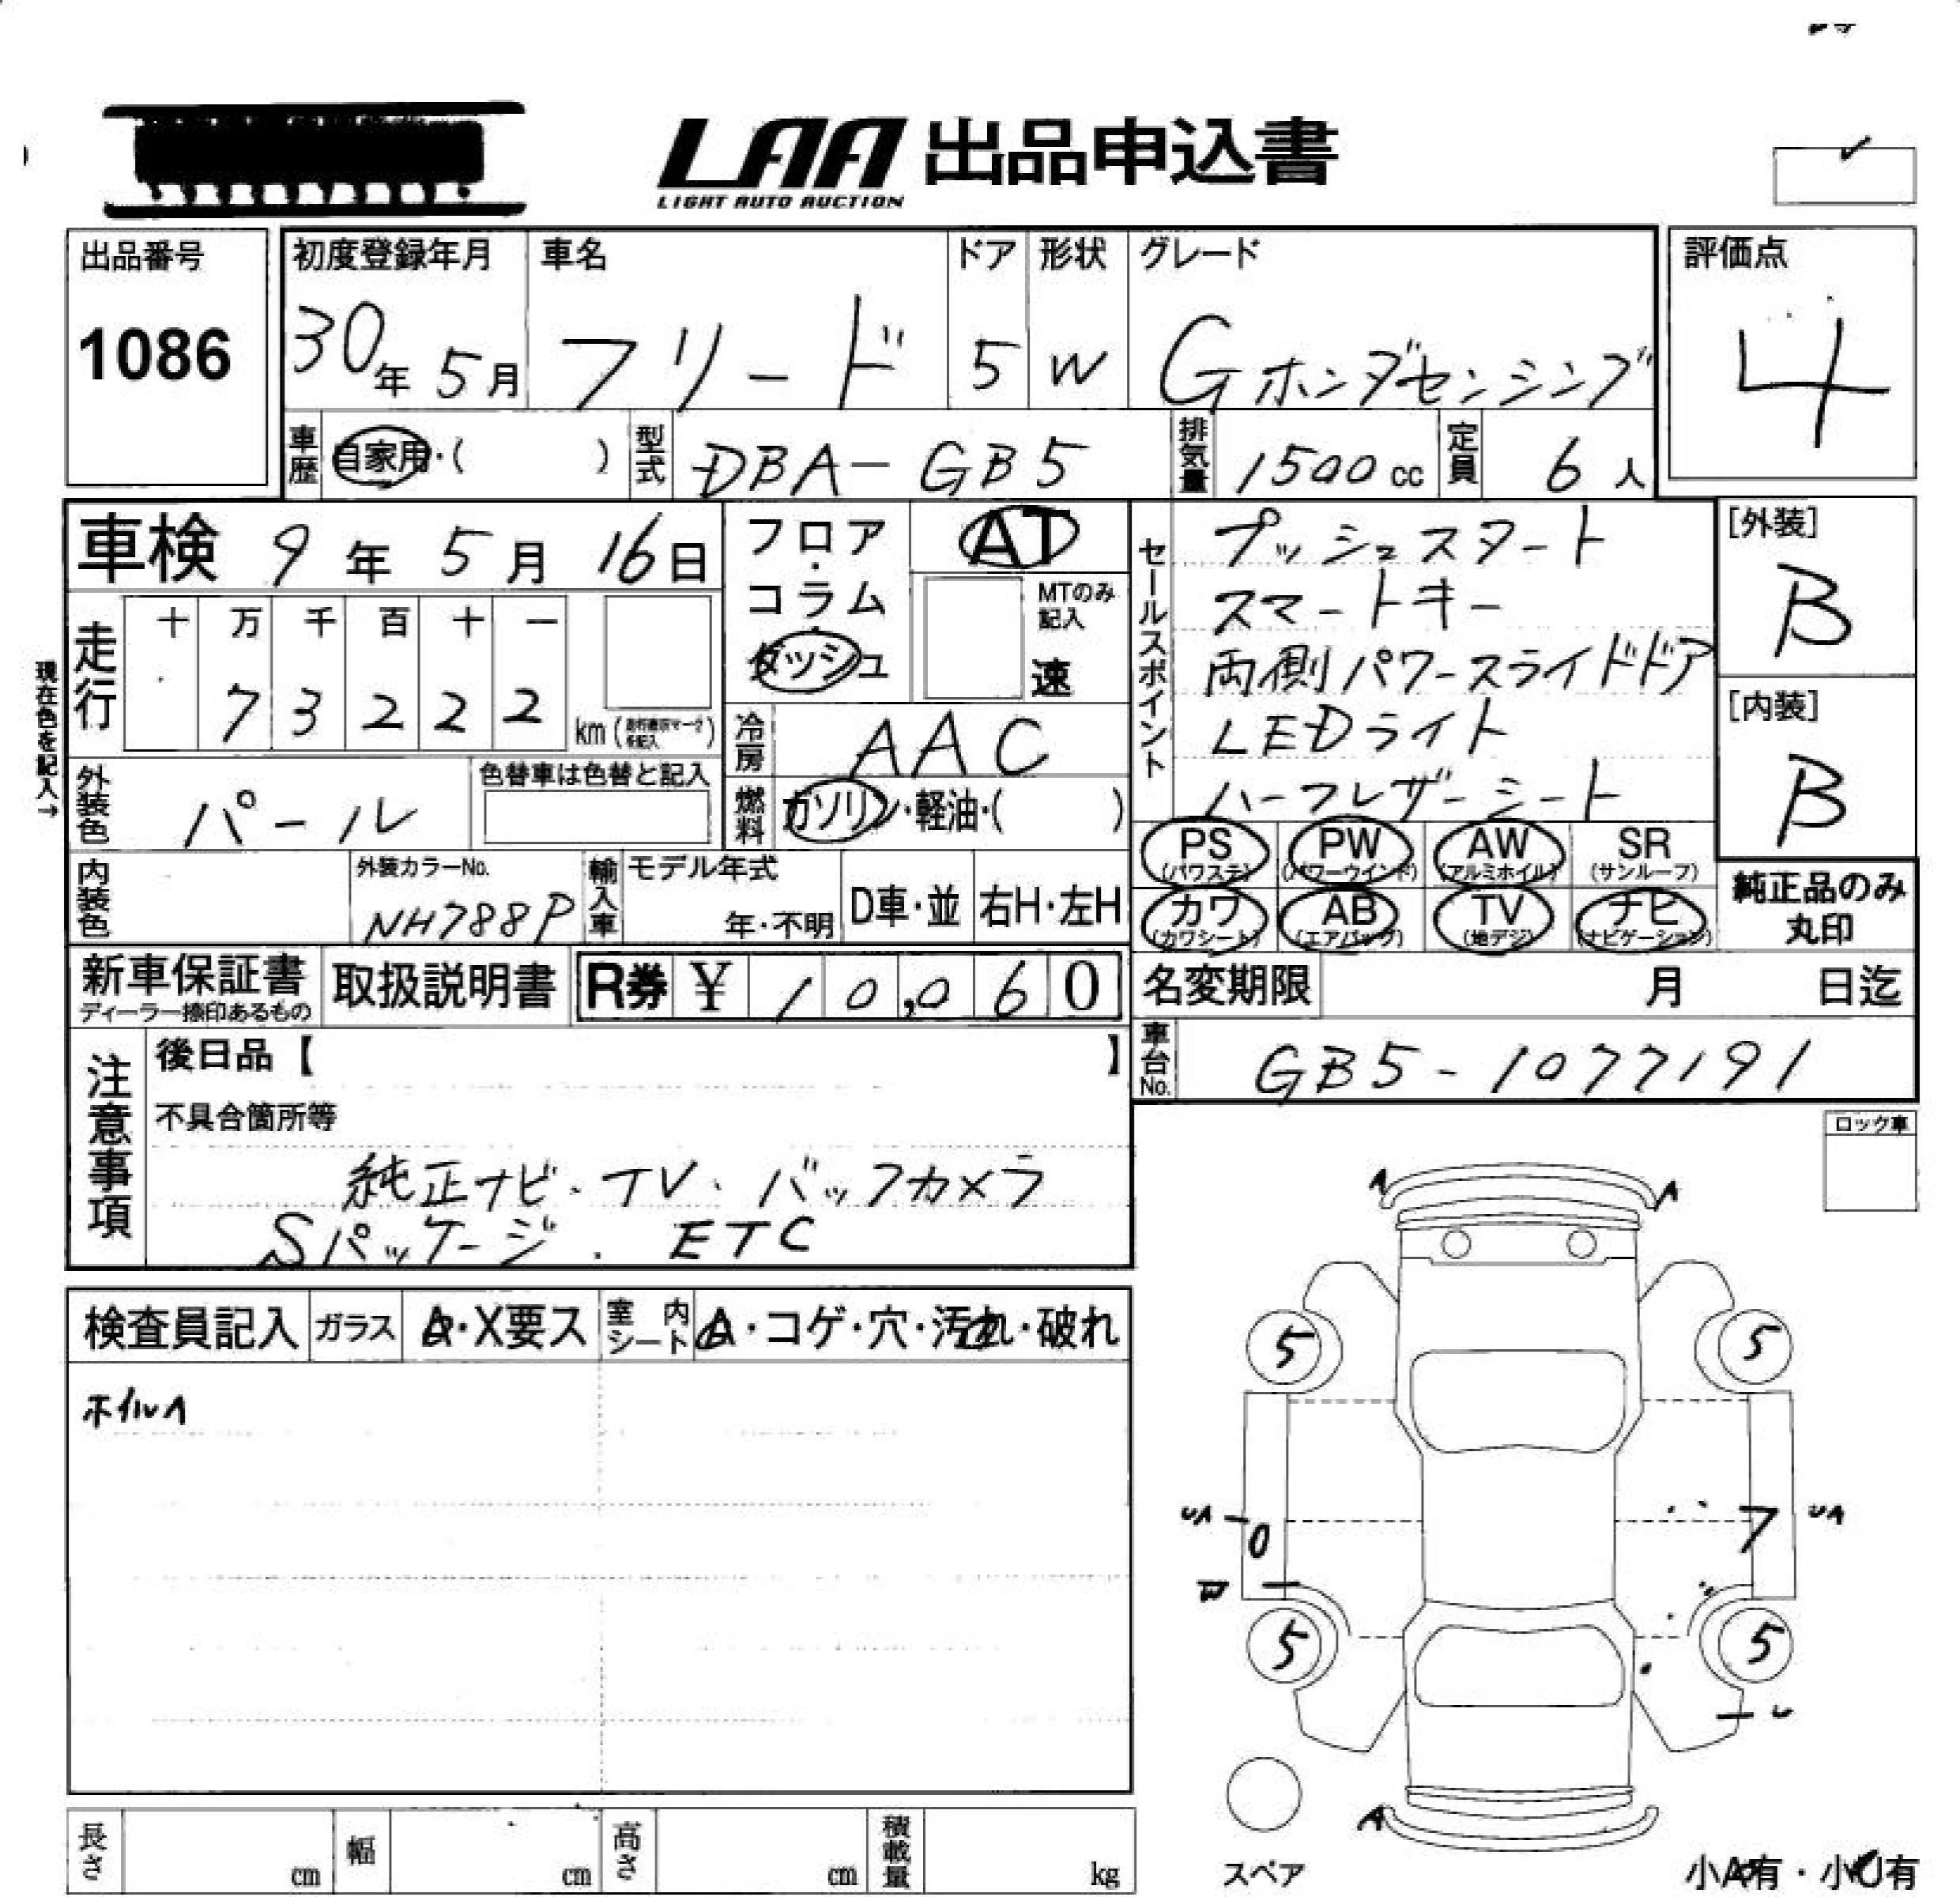 LAA 出品申込書
LIGHT AUTO AUCTION
出品番号
1086
初度登録年月
30年 5月
車名
フリード
ドア
5
形状
W
グレード
Gホンダセンシング
評価点
4
車歴
自家用・( )
型式
DBA-GB5
排気量
1500 cc
定員
6 人
車検 9年 5月 16日
フロア・コラム・ダッシュ
AT
MTのみ記入
速
セールスポイント
プッシュスタート
スマートキー
両側パワースライドドア
LEDライト
ハーフレザーシート
[外装]
B
[内装]
B
現在色を記入→
走行
十 万 千 百 十 一
7 3 2 2 2
km
冷房
AAC
外装色
パール
色替車は色替と記入
燃料
ガソリン・軽油・( )
PS (パワステ)
PW (パワーウインド)
AW (アルミホイル)
SR (サンルーフ)
カワ (カワシート)
AB (エアバッグ)
TV (地デジ)
ナビ (ナビゲーション)
純正品のみ丸印
内装色
外装カラーNo.
NH788P
輸入車
モデル年式
年・不明
D車・並
右H・左H
新車保証書
ディーラー捺印あるもの
取扱説明書
R券 ¥ 10,060
名変期限 月 日迄
車台No.
GB5-1077191
注意事項
後日品【 】
不具合箇所等
純正ナビ・TV・バックカメラ
Sパッケージ . ETC
ロック車
検査員記入
ガラス
A・X要ス
室内シート
A・コゲ・穴・汚れ・破れ
ホイルA
A A
5 5
UA 0 7 UA
W
5 5
U
A
スペア
小A有・小U有
長さ cm
幅 cm
高さ cm
積載量 kg